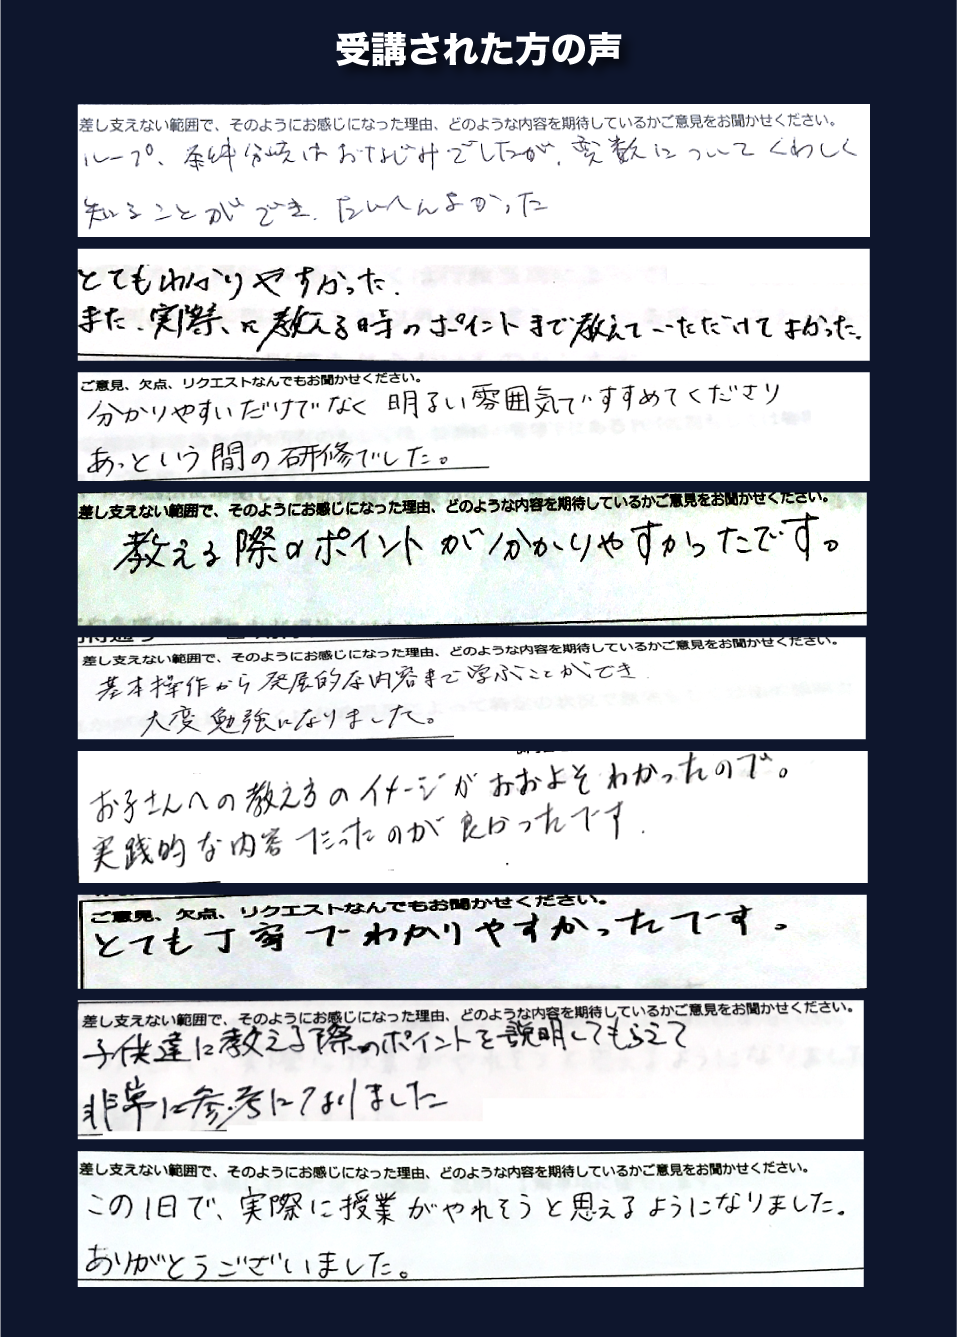 受講された方の声
差し支えない範囲で、そのようにお感じになった理由、どのような内容を期待しているかご意見をお聞かせください。
ループ、条件分岐はおなじみでしたが、変数についてくわしく
知ることができ、たいへんよかった
とてもわかりやすかった、
また、実際に教える時のポイントまで教えていただけてよかった。
ご意見、欠点、リクエストなんでもお聞かせください。
分かりやすいだけでなく明るい雰囲気ですすめてくださり
あっという間の研修でした。
差し支えない範囲で、そのようにお感じになった理由、どのような内容を期待しているかご意見をお聞かせください。
教える際のポイントが分かりやすかったです。
差し支えない範囲で、そのようにお感じになった理由、どのような内容を期待しているかご意見をお聞かせください。
基本操作から発展的な内容まで学ぶことができ
大変勉強になりました。
お子さんへの教え方のイメージがおおよそわかったので。
実践的な内容だったのが良かったです.
ご意見、欠点、リクエストなんでもお聞かせください。
とても丁寧でわかりやすかったです。
差し支えない範囲で、そのようにお感じになった理由、どのような内容を期待しているかご意見をお聞かせください。
子供達に教える際のポイントを説明してもらえて
非常に参考になりました
差し支えない範囲で、そのようにお感じになった理由、どのような内容を期待しているかご意見をお聞かせください。
この1日で、実際に授業がやれそうと思えるようになりました。
ありがとうございました。